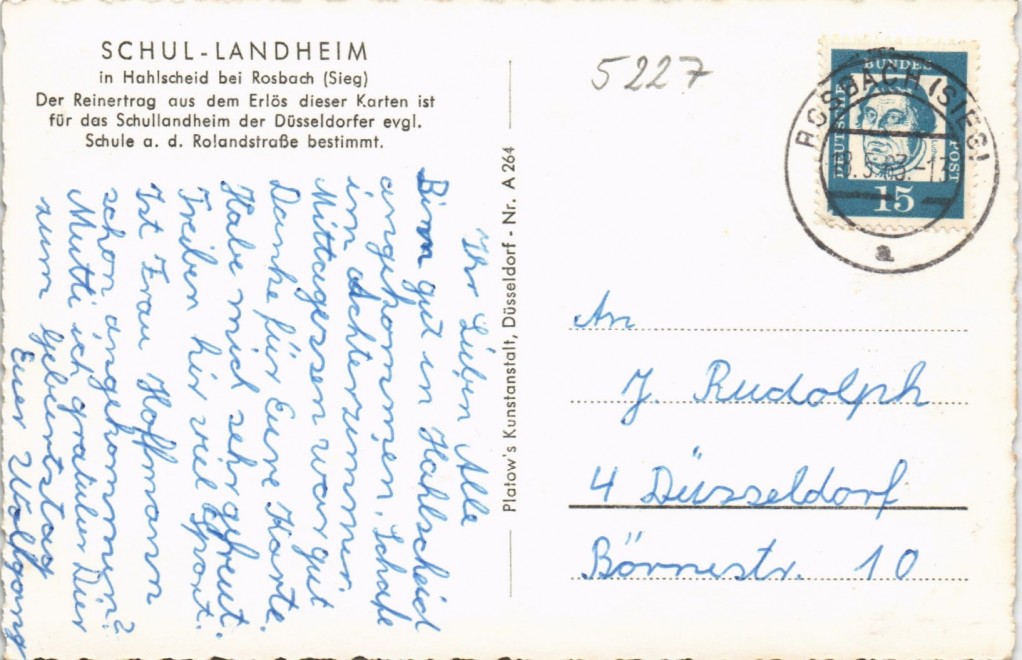 SCHUL-LANDHEIM
in Hahlscheid bei Rosbach (Sieg)
Der Reinertrag aus dem Erlös dieser Karten ist
für das Schullandheim der Düsseldorfer evgl.
Schule a. d. Rolandstraße bestimmt.
Ihr Lieben Alle
Binn gut in Hahlscheid
angekommen. Schafe
im Achterzimmer.
Mittagessen war gut
Danke für Eure Karte.
Habe mich sehr gefreut.
Treiben hir viel Sport.
Ist Frau Hoffmann
schon angekommen?
Mutti ich gratulier Dier
zum Geburtstag
Euer Wolfgang
Platow's Kunstanstalt, Düsseldorf - Nr. A 264
5227
DEUTSCHE BUNDES POST
15
ROSBACH (SIEG)
8.5.63.-13
a
An
J. Rudolph
4 Düsseldorf
Börnestr. 10